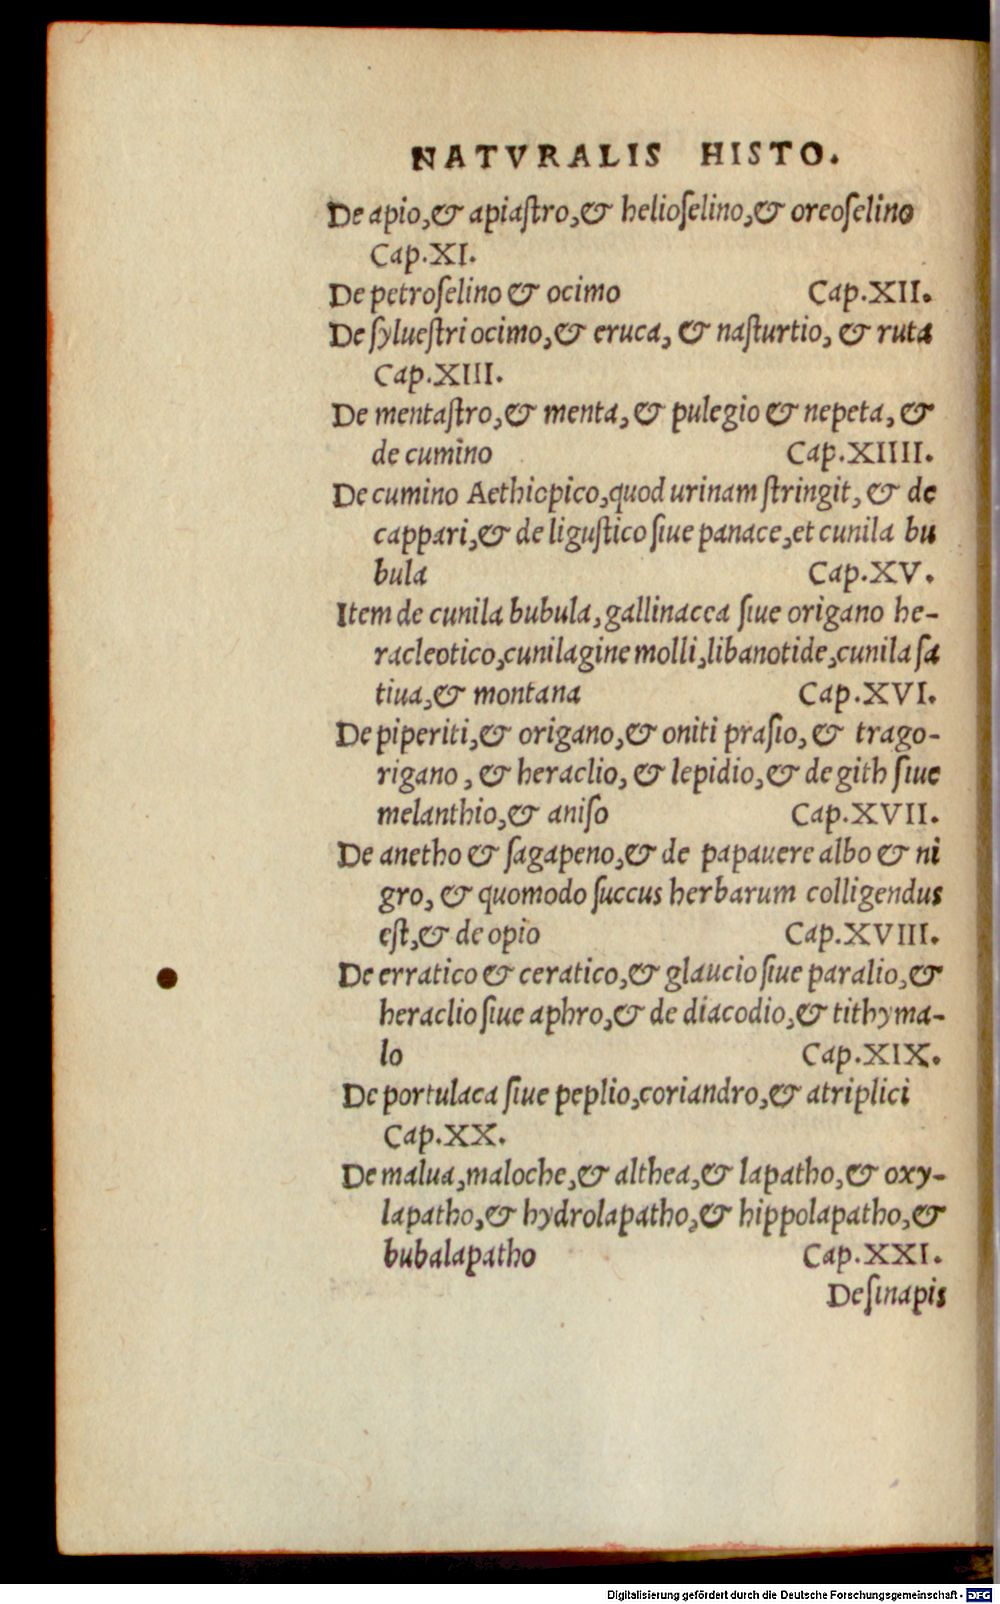 NATVRALIS HISTO.
De apio,& apiaſtro,& helioſelino,& oreoſelino
Cap.XI.
De petroſelino & ocimo Cap.XII.
De ſylueſtri ocimo,& eruca, & naſturtio, & ruta
Cap.XIII.
De mentaſtro,& menta,& pulegio & nepeta,&
de cumino Cap.XIIII.
De cumino Aethiopico,quod urinam ſtringit, & de
cappari,& de liguſtico ſiue panace,et cunila bu
bula Cap.XV.
Item de cunila bubula,gallinacea ſiue origano he-
racleotico,cunilagine molli,libanotide,cunila ſa
tiua,& montana Cap.XVI.
De piperiti,& origano,& oniti praſio,& trago-
rigano , & heraclio, & lepidio,& de gith ſiue
melanthio,& aniſo Cap.XVII.
De anetho & ſagapeno,& de papauere albo & ni
gro, & quomodo ſuccus herbarum colligendus
eſt,& de opio Cap.XVIII.
De erratico & ceratico,& glaucio ſiue paralio,&
heraclio ſiue aphro,& de diacodio,& tithyma-
lo Cap.XIX.
De portulaca ſiue peplio,coriandro,& atriplici
Cap.XX.
De malua,maloche,& althea,& lapatho,& oxy-
lapatho,& hydrolapatho,& hippolapatho,&
bubalapatho Cap.XXI.
De ſinapis
Digitalisierung gefördert durch die Deutsche Forschungsgemeinschaft - DFG